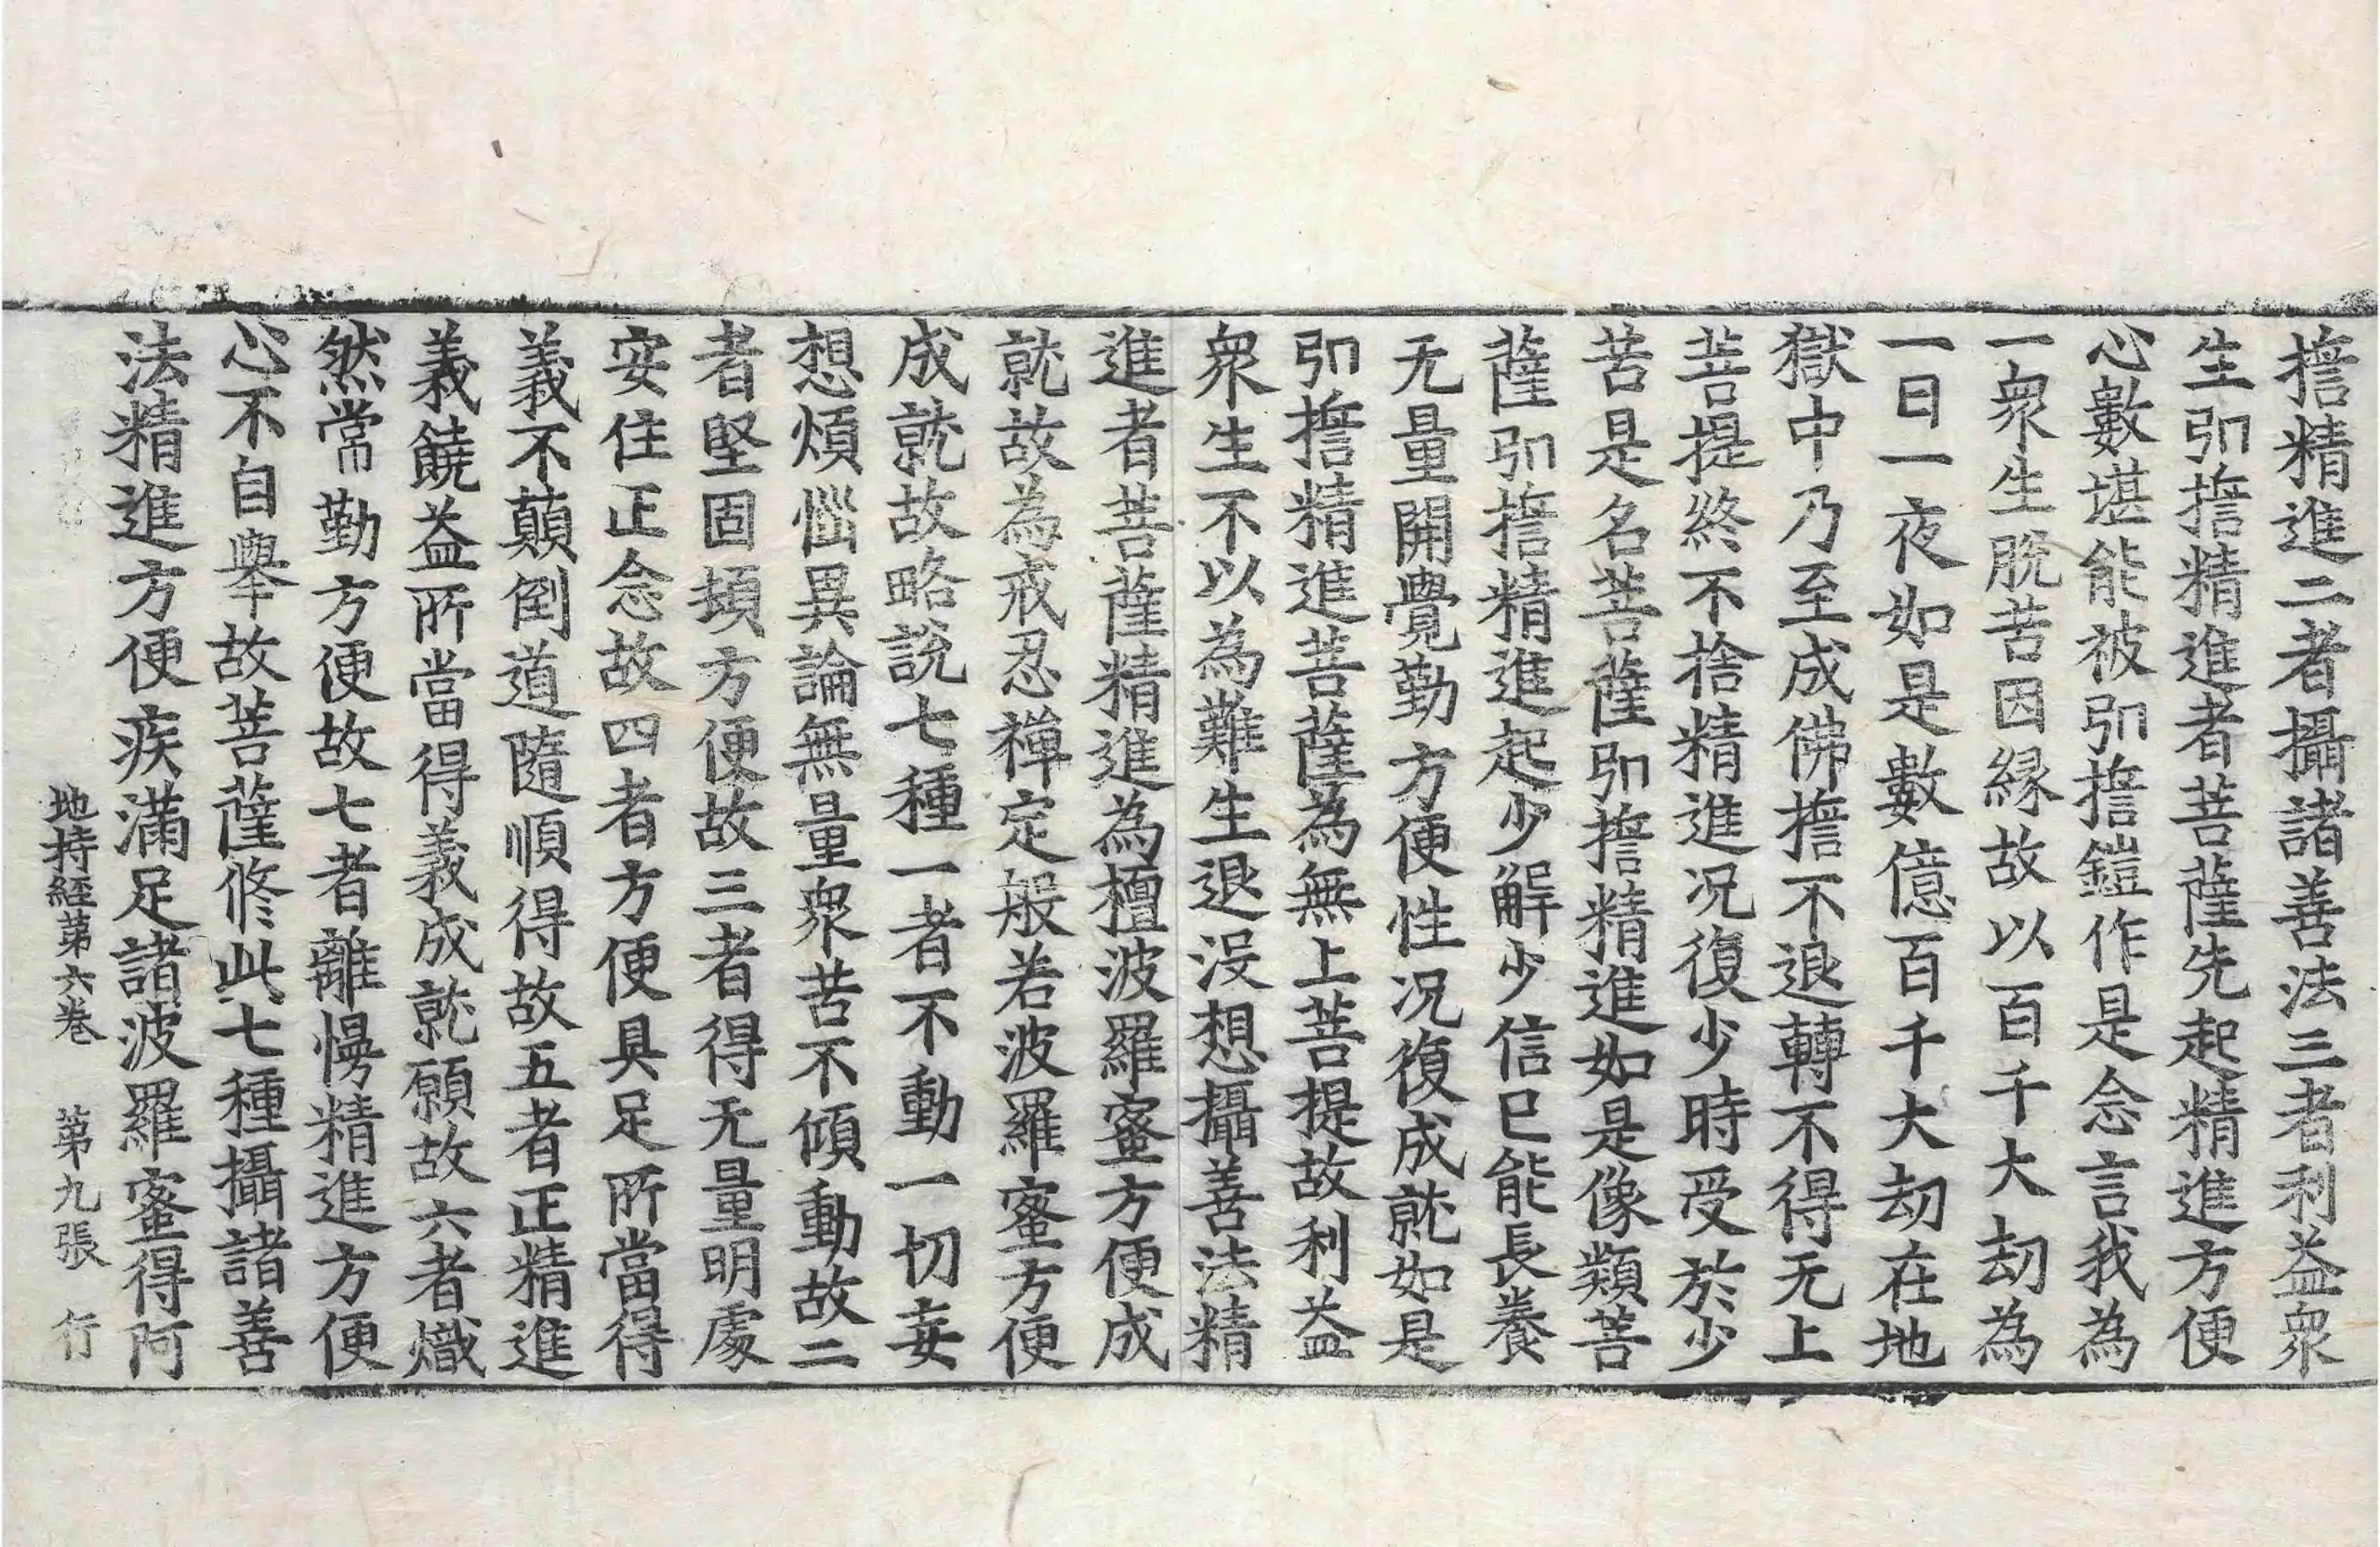 擔精進二者攝諸善法三者利益衆
生弘擔精進者菩薩先起精進方便
心數堪能被弘擔鎧作是念言我為
一衆生脫苦因緣故以百千大劫為
一日一夜如是數億百千大劫在地
獄中乃至成佛擔不退轉不得无上
菩提終不捨精進况復少時受於少
苦是名菩薩弘擔精進如是像類菩
薩弘擔精進起少解少信已能長養
无量開覺勤方便性况復成就如是
弘擔精進菩薩為無上菩提故利益
衆生不以為難生退没想攝善法精
進者菩薩精進為檀波羅蜜方便成
就故為戒忍禅定般若波羅蜜方便
成就故略說七種一者不動一切妄
想煩惱異論無量衆苦不傾動故二
者堅固頓方便故三者得无量明處
安住正念故四者方便具足所當得
義不顛倒道隨順得故五者正精進
義饒益所當得義成就願故六者熾
然常勤方便故七者離慢精進方便
心不自舉故菩薩修此七種攝諸善
法精進方便疾滿足諸波羅蜜得阿
地持經第六卷 第九張 行